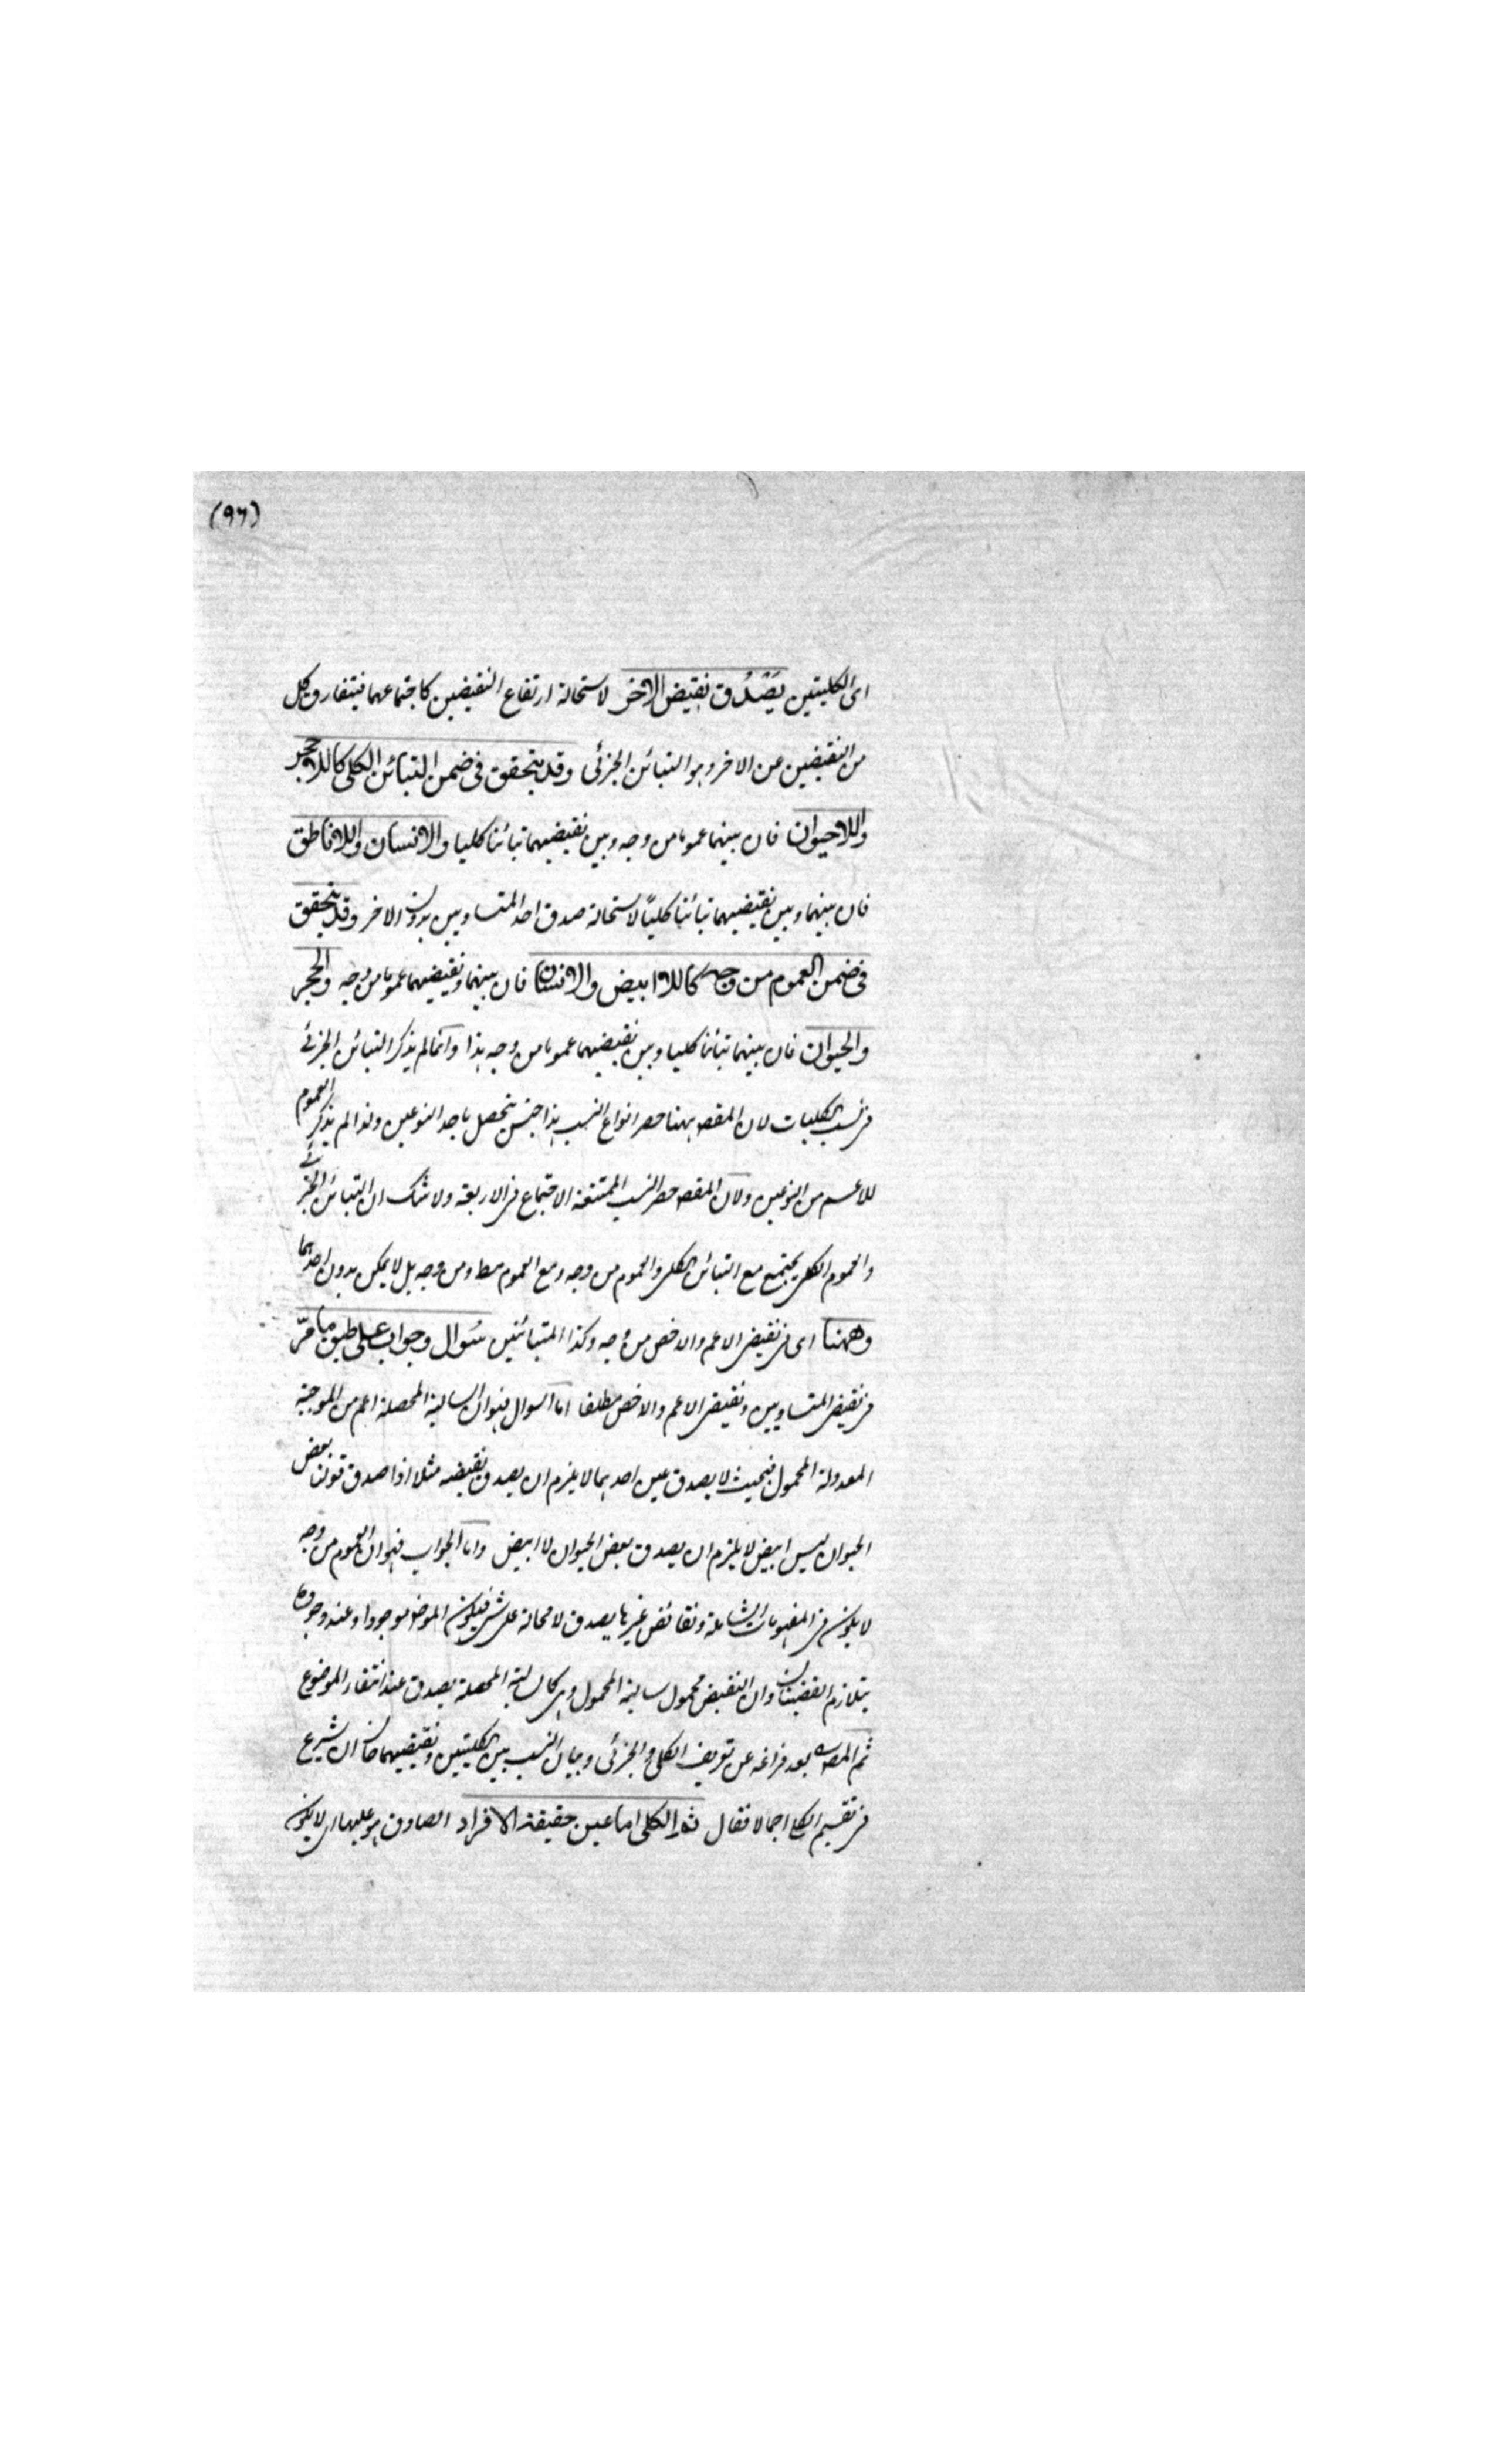 (٩٦)
اى الكليتين يَصْدُق نقيض الاخر لاستحالة ارتفاع النقيضين كاجتماعهما فيتفارق كل
من النقيضين عن الاخر وهو التبائن الجزئى وقد يتحقق فى ضمن التبائن الكلى كاللاحجر
واللاحيوان فان بينهما عموما من وجه وبين نقيضيهما تبائنا كليا والانسان واللاناطق
فان بينهما وبين نقيضيهما تبائنا كليًا لاستحالة صدق احد المتساويين بدون الاخر وقد يتحقق
فى ضمن العموم من وجه كاللاابيض والانسان فان بينهما ونقيضيهما عموما من وجه والحجر
والحيوان فان بينهما تبائنا كليا وبين نقيضيهما عموما من وجه هذا وانما لم يذكر التبائن الجزئى
فى نسب الكليات لان المقصـ ههنا حصر انواع النسب هذا جنس يتحصل باحد النوعين ولذا لم يذكر العموم
للاعم من النوعين ولان المقصـ حصر النسب الممتنعة الاجتماع فى الاربعة ولا شك ان التبائن الجزئى
والعموم الكلى يجتمع مع التبائن الكلى والعموم من وجه ومع العموم مط ومن وجه بل لا يمكن بدون احدهما
وههنا اى فى نقيض الاعم والاخص من وجه وكذا المتبائنين سُوال وجواب على طبق ما مرّ
فى نقيض المتساويين ونقيض الاعم والاخص مطلقا اما السوال فهو ان السالبة المحصلة اعم من الموجبة
المعدولة المحمول فبحيث لا يصدق عين احدهما لا يلزم ان يصدق نقيضه مثلا اذا صدق قولنا بعض
الحيوان ليس ابيض لا يلزم ان يصدق بعض الحيوان لا ابيض واما الجواب فهو ان العموم من وجه
لا يكون فى المفهومات الشاملة ونقائض غيرها يصدق لا محالة على شئ فيكون الموضوع موجودا وعند وجوده
يتلازم القضيتان وان النقيض محمول سالبة المحمول وهى كالسالبة المحصلة يصدق عند انتفاء الموضوع
ثم المصـ بعد فراغه عن تعريف الكلى والجزئى وبيان النسب بين الكليتين ونقيضيهما حان ان يشرع
فى تقسيم الكلى اجمالا فقال ثم الكلى اما عين حقيقة الافراد الصادق هو عليها اى لا يكون